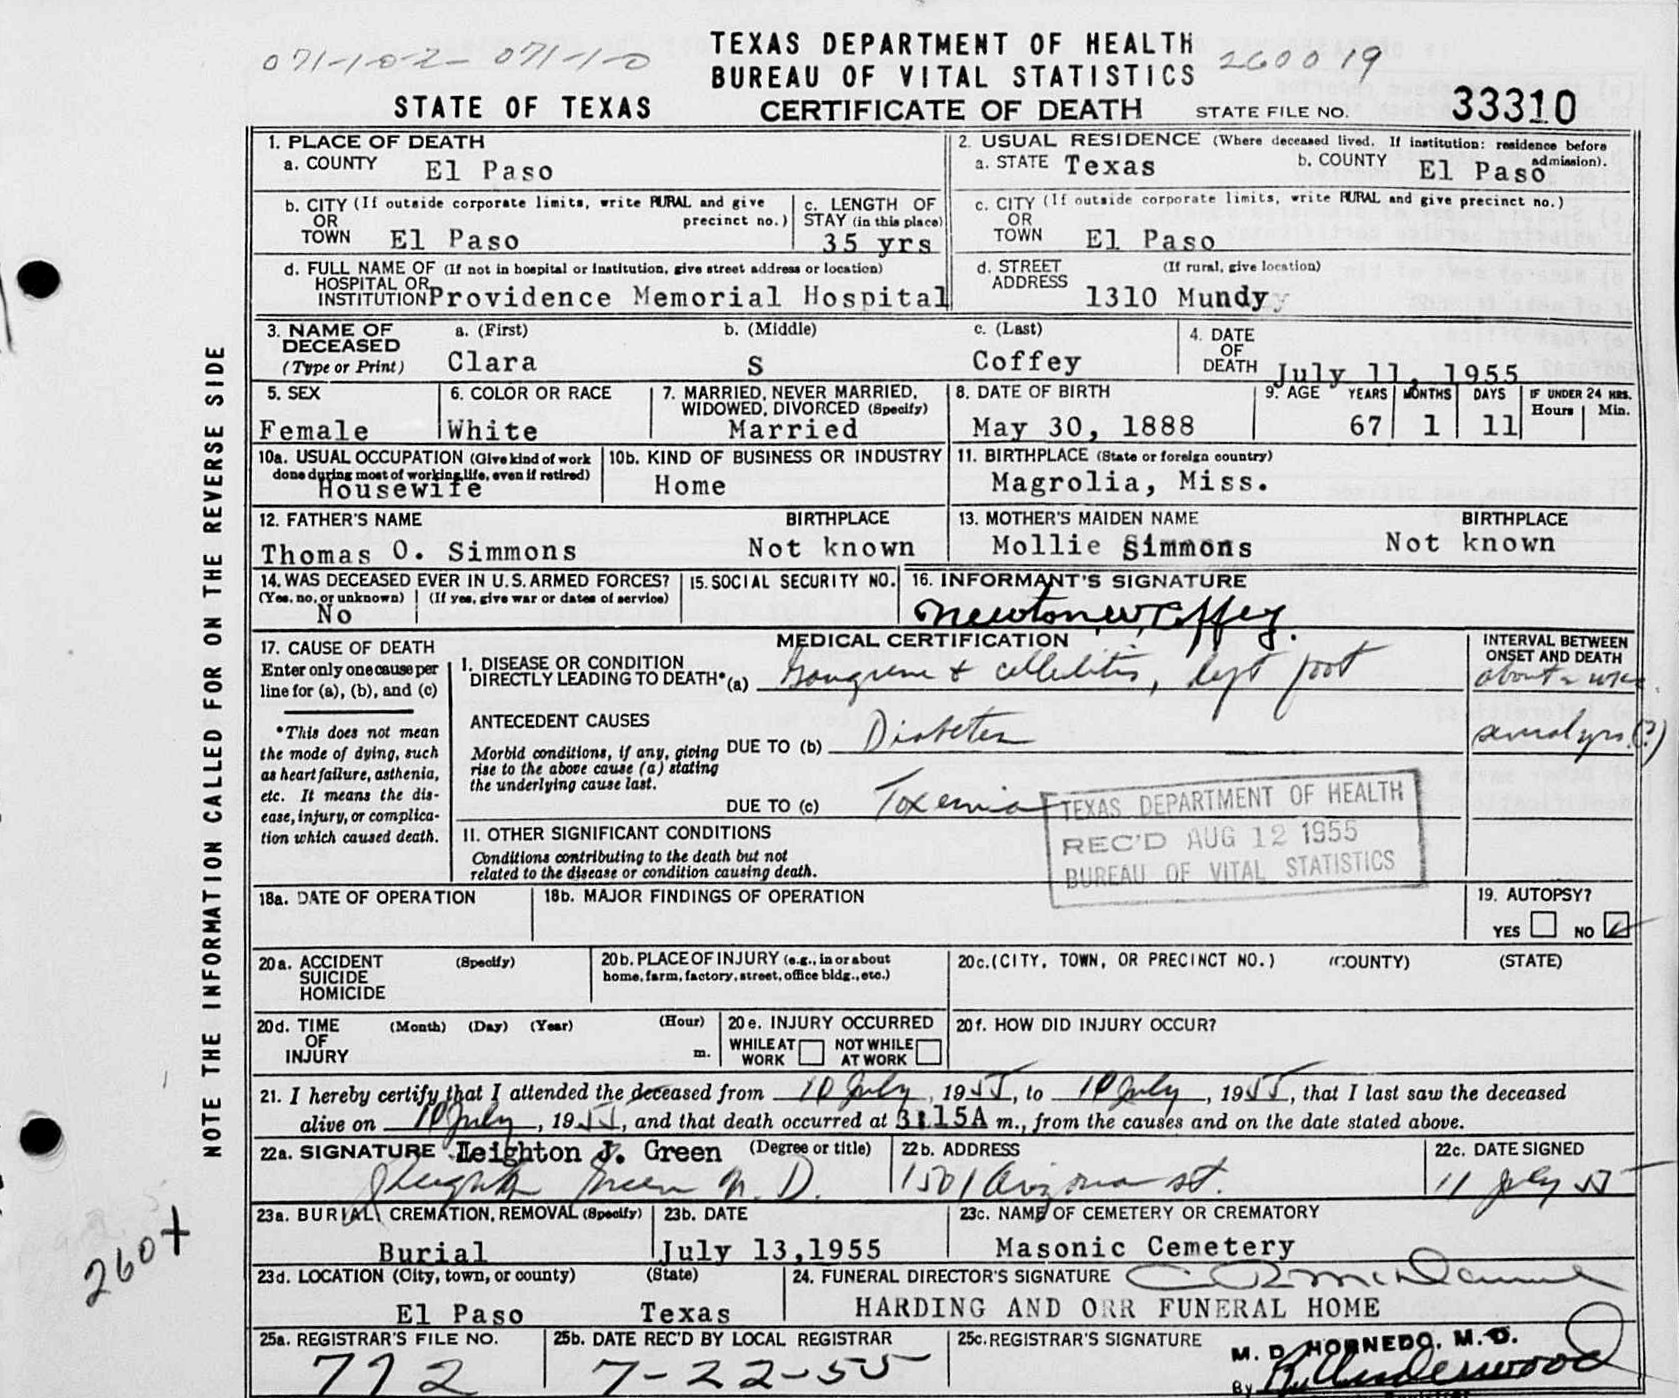 TEXAS DEPARTMENT OF HEALTH
071-10-2- 071-10
BUREAU OF VITAL STATISTICS
260019
STATE OF TEXAS
CERTIFICATE OF DEATH
STATE FILE NO. 33310
NOTE THE INFORMATION CALLED FOR ON THE REVERSE SIDE
260+
1. PLACE OF DEATH
a. COUNTY El Paso
2. USUAL RESIDENCE (Where deceased lived. If institution: residence before admission).
a. STATE Texas b. COUNTY El Paso
b. CITY (If outside corporate limits, write RURAL and give precinct no.)
OR
TOWN El Paso
c. LENGTH OF
STAY (in this place)
35 yrs
c. CITY (If outside corporate limits, write RURAL and give precinct no.)
OR
TOWN El Paso
d. FULL NAME OF (If not in hospital or institution, give street address or location)
HOSPITAL OR
INSTITUTION Providence Memorial Hospital
d. STREET (If rural, give location)
ADDRESS 1310 Mundy
3. NAME OF
DECEASED
(Type or Print)
a. (First) b. (Middle) c. (Last)
Clara S Coffey
4. DATE
OF
DEATH July 11, 1955
5. SEX
Female
6. COLOR OR RACE
White
7. MARRIED, NEVER MARRIED,
WIDOWED, DIVORCED (Specify)
Married
8. DATE OF BIRTH
May 30, 1888
9. AGE YEARS MONTHS DAYS IF UNDER 24 HRS.
Hours Min.
67 1 11
10a. USUAL OCCUPATION (Give kind of work
done during most of working life, even if retired)
Housewife
10b. KIND OF BUSINESS OR INDUSTRY
Home
11. BIRTHPLACE (State or foreign country)
Magrolia, Miss.
12. FATHER'S NAME BIRTHPLACE
Thomas O. Simmons Not known
13. MOTHER'S MAIDEN NAME BIRTHPLACE
Mollie Simmons Not known
14. WAS DECEASED EVER IN U.S. ARMED FORCES?
(Yes, no, or unknown) (If yes, give war or dates of service)
No
15. SOCIAL SECURITY NO.
16. INFORMANT'S SIGNATURE
Newton W. Coffey.
17. CAUSE OF DEATH
Enter only one cause per
line for (a), (b), and (c)
*This does not mean
the mode of dying, such
as heart failure, asthenia,
etc. It means the dis-
ease, injury, or complica-
tion which caused death.
MEDICAL CERTIFICATION
INTERVAL BETWEEN
ONSET AND DEATH
I. DISEASE OR CONDITION
DIRECTLY LEADING TO DEATH* (a) Gangrene & cellulitis, left foot
about 2 wks.
ANTECEDENT CAUSES
Morbid conditions, if any, giving
rise to the above cause (a) stating
the underlying cause last.
DUE TO (b) Diabetes
several yrs.(?)
DUE TO (c) Toxemia
TEXAS DEPARTMENT OF HEALTH
REC'D AUG 12 1955
BUREAU OF VITAL STATISTICS
II. OTHER SIGNIFICANT CONDITIONS
Conditions contributing to the death but not
related to the disease or condition causing death.
18a. DATE OF OPERATION
18b. MAJOR FINDINGS OF OPERATION
19. AUTOPSY?
YES NO
20a. ACCIDENT (Specify)
SUICIDE
HOMICIDE
20b. PLACE OF INJURY (e.g., in or about
home, farm, factory, street, office bldg., etc.)
20c. (CITY, TOWN, OR PRECINCT NO.) (COUNTY) (STATE)
20d. TIME (Month) (Day) (Year) (Hour)
OF
INJURY m.
20e. INJURY OCCURRED
WHILE AT WORK NOT WHILE AT WORK
20f. HOW DID INJURY OCCUR?
21. I hereby certify that I attended the deceased from 10 July, 1955, to 10 July, 1955, that I last saw the deceased
alive on 10 July, 1955, and that death occurred at 3:15A m., from the causes and on the date stated above.
22a. SIGNATURE Leighton J. Green (Degree or title)
Leighton Green M.D.
22b. ADDRESS
1501 Arizona st.
22c. DATE SIGNED
11 July 55
23a. BURIAL, CREMATION, REMOVAL (Specify)
Burial
23b. DATE
July 13,1955
23c. NAME OF CEMETERY OR CREMATORY
Masonic Cemetery
23d. LOCATION (City, town, or county) (State)
El Paso Texas
24. FUNERAL DIRECTOR'S SIGNATURE
HARDING AND ORR FUNERAL HOME
25a. REGISTRAR'S FILE NO.
772
25b. DATE REC'D BY LOCAL REGISTRAR
7-22-55
25c. REGISTRAR'S SIGNATURE
M. D. HORNEDO, M. D.
By Underwood